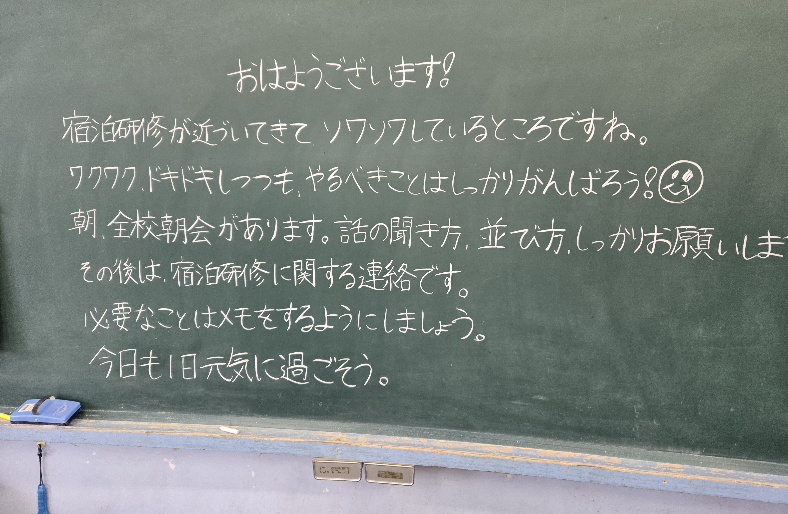 おはようございます!
宿泊研修が近づいてきて、ソワソワしているところですね。
ワクワク、ドキドキしつつも、やるべきことはしっかりがんばろう!
朝、全校朝会があります。話の聞き方、並び方、しっかりお願いしま
その後は、宿泊研修に関する連絡です。
必要なことはメモをするようにしましょう。
今日も1日元気に過ごそう。